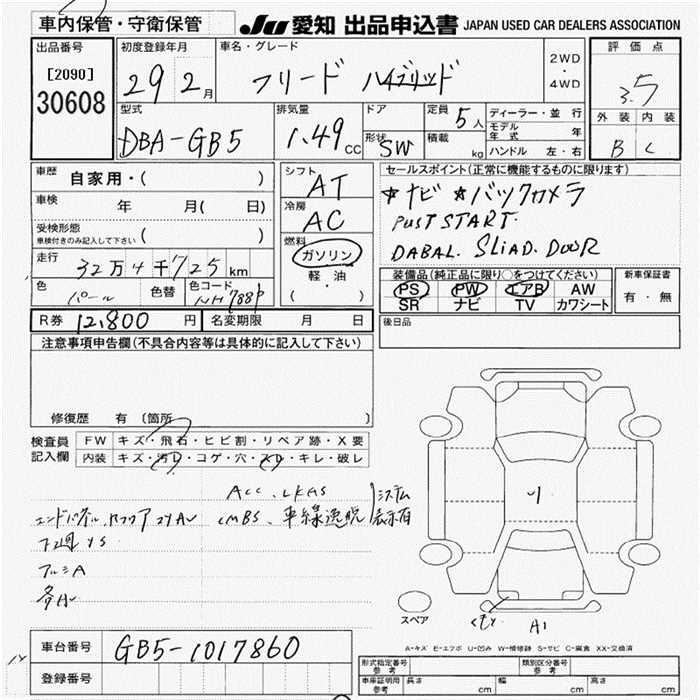 車内保管・守衛保管
JU 愛知 出品申込書 JAPAN USED CAR DEALERS ASSOCIATION
出品番号
[2090]
30608
初度登録年月
29 2月
車名・グレード
フリード ハイブリッド
2WD
・
4WD
評価点
3.5
外装 内装
B C
型式
DBA-GB5
排気量
1.49 CC
ドア
形状 SW
定員 5人
積載 kg
ディーラー・並行
モデル年式 年
ハンドル 左・右
車歴 自家用・( )
車検 年 月( 日)
受検形態
車検付きのみ記入して下さい ( )
走行 32万4千725km
色 パール 色替 色コード NH788P
シフト AT
冷房 AC
燃料
ガソリン
軽・油
( )
セールスポイント(正常に機能するものに限ります)
★ナビ ★バックカメラ
PUST START.
DABAL. SLIAD. DOOR
装備品(純正品に限り○をつけてください)
PS PW エアB AW
SR ナビ TV カワシート
新車保証書
有・無
R券 12,800 円 名変期限 月 日
後日品
注意事項申告欄(不具合内容等は具体的に記入して下さい)
修復歴 有 〔箇所 〕
検査員記入欄
FW キズ・飛石・ヒビ割・リペア跡・X要
内装 キズ・汚レ・コゲ・穴・スレ・キレ・破レ
ACC. LKAS
CMBS、車線逸脱
システム
表示有
下廻 サS
アルミA
各A
り
A1
スペア
A-キズ E-エクボ U-凹み W-補修跡 S-サビ C-腐食 XX-交換済
車台番号 GB5-1017860
登録番号
形式指定番号 参考
類別区分番号 参考
車庫証明用 参考 長さ cm 幅 cm 高さ cm